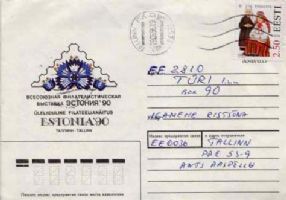 2.50 EESTI
EE 2810
TÜRI
BOX 90
ВСЕСОЮЗНАЯ ФИЛАТЕЛИСТИЧЕСКАЯ
ВЫСТАВКА ЭСТОНИЯ'90
ÜLELIIDULINE FILATEELIANÄITUS
ESTONIA'90
ТАЛЛИНН · TALLINN
EE0036 TALLINN
PAE 53-9
ANTS
Индекс предприятия связи и адрес отправителя
Пишите индекс предприятия связи места назначения